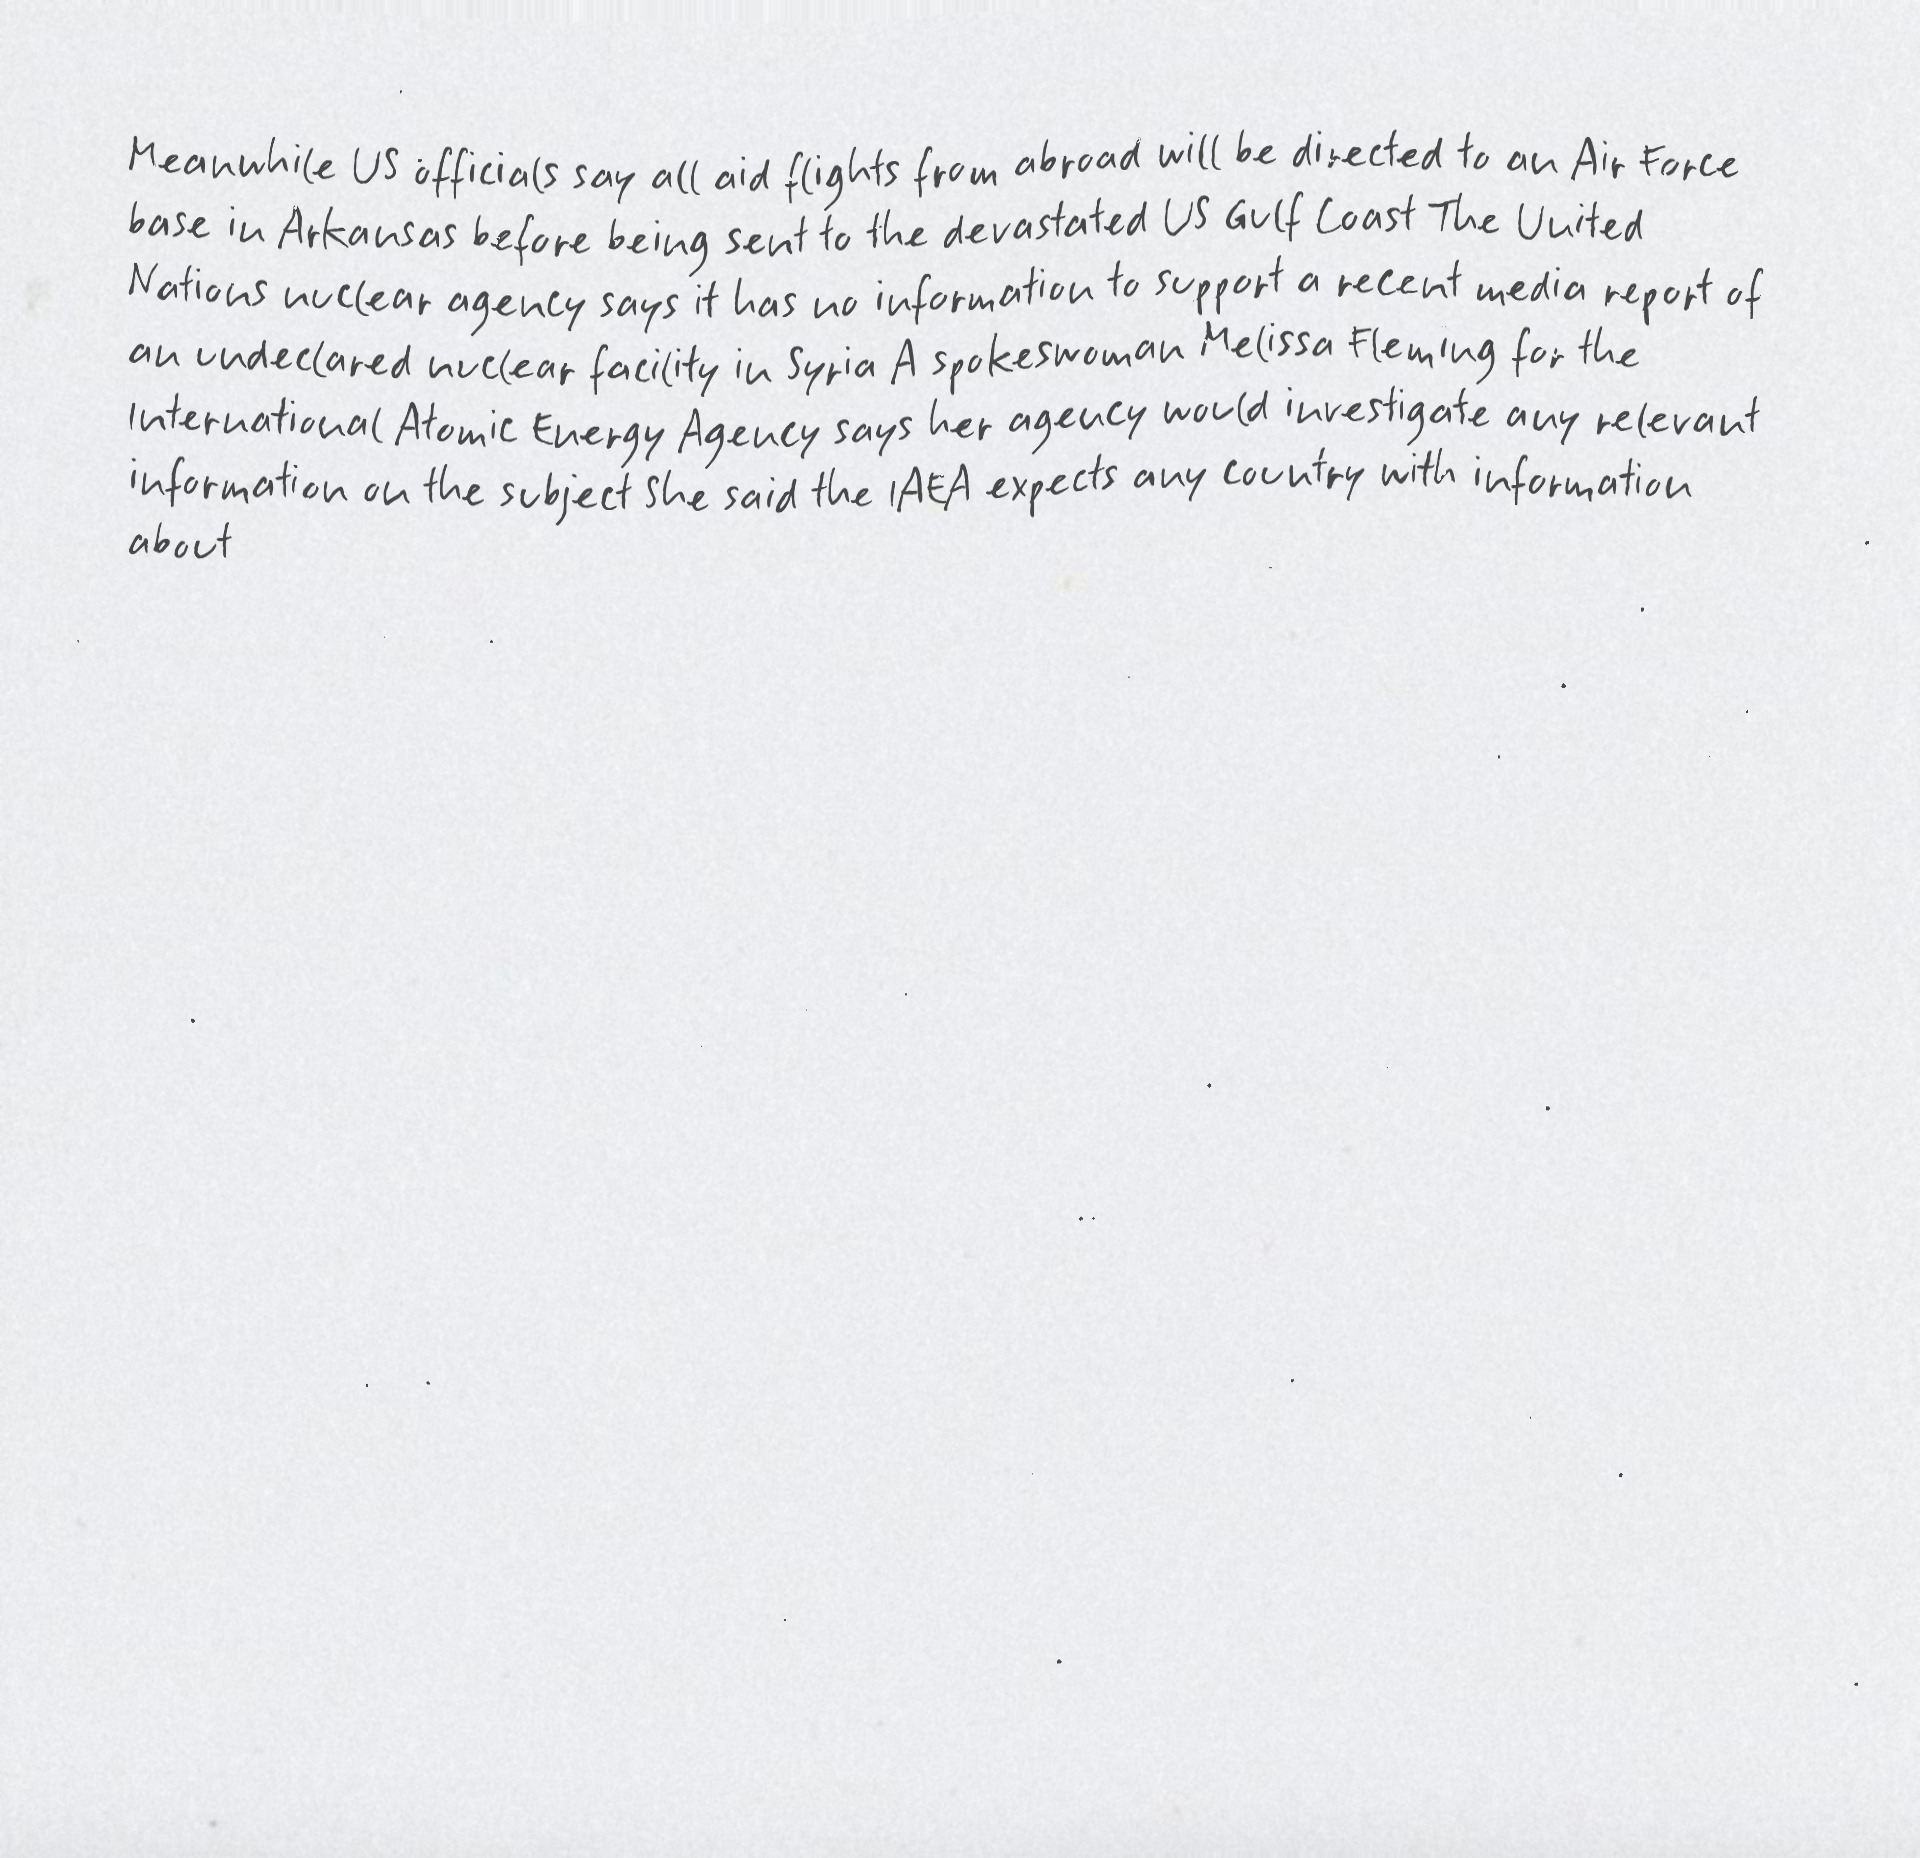 Meanwhile US officials say all aid flights from abroad will be directed to an Air Force
base in Arkansas before being sent to the devastated US Gulf Coast The United
Nations nuclear agency says it has no information to support a recent media report of
an undeclared nuclear facility in Syria A spokeswoman Melissa Fleming for the
International Atomic Energy Agency says her agency would investigate any relevant
information on the subject She said the IAEA expects any country with information
about